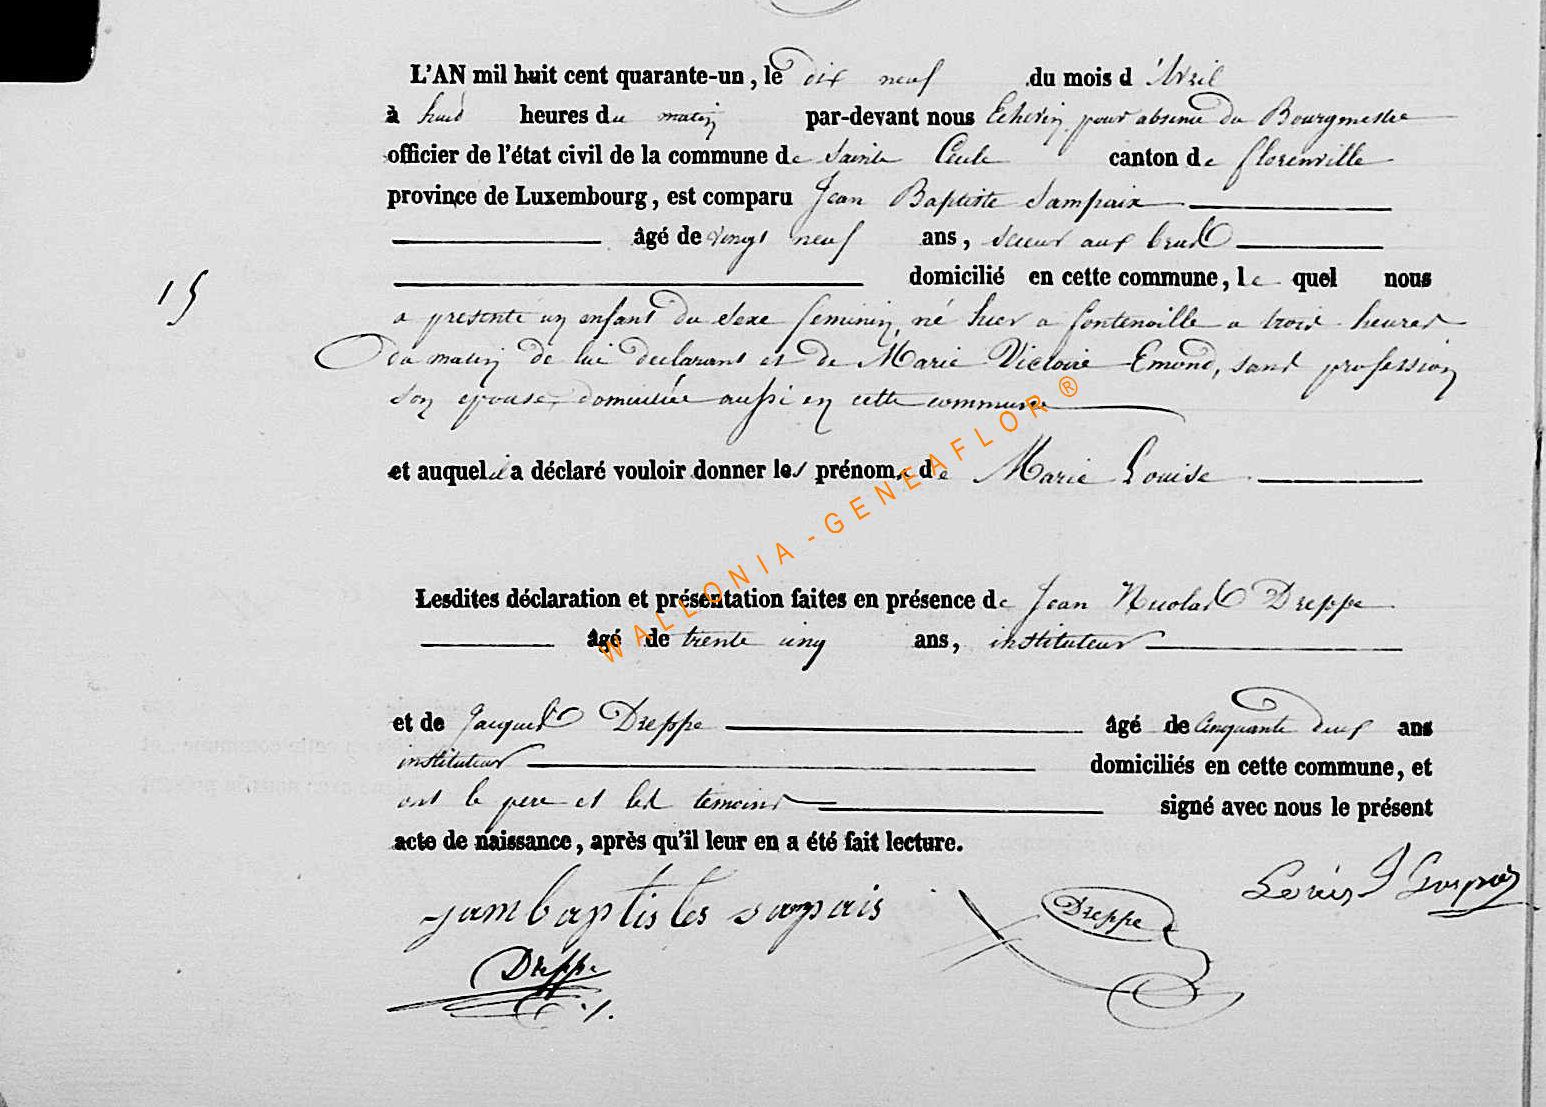 L'AN mil huit cent quarante-un, le dix neuf du mois d'Avril
à huit heures du matin par-devant nous Echevin pour absence du Bourgmestre
officier de l'état civil de la commune de Sainte Cecile canton de florenville
province de Luxembourg, est comparu Jean Baptiste Sampaix
âgé de vingt neuf ans, scieur aux bras
domicilié en cette commune, le quel nous
15
a présenté un enfant du sexe feminin, né hier a fontenoille a trois heures
du matin de lui declarant et de Marie Victoire Emond, sans profession
son epouse, domiciliée aussi en cette commune
et auquel il a déclaré vouloir donner les prénoms de Marie Louise
Lesdites déclaration et présentation faites en présence de Jean Nicolas Dreppe
âgé de trente cinq ans, instituteur
et de Jacques Dreppe âgé de Cinquante deux ans
instituteur domiciliés en cette commune, et
ont le pere et les temoins signé avec nous le présent
acte de naissance, après qu'il leur en a été fait lecture.
Dreppe
Dreppe
WALLONIA - GENEAFLOR ®